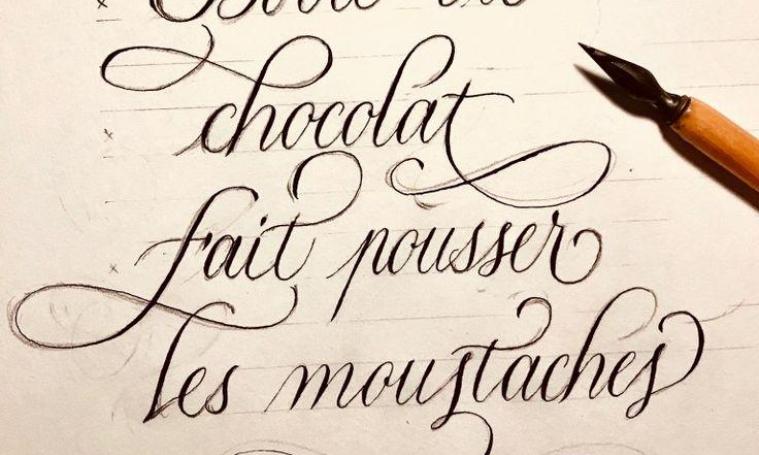 chocolat
fait pousser
les moustaches